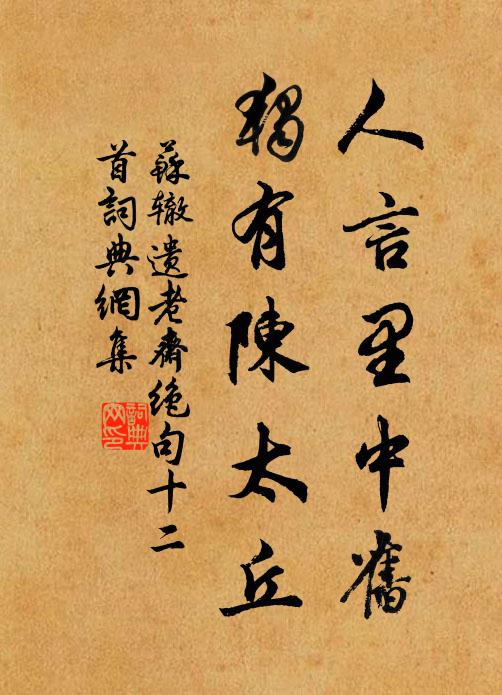 人言里中舊
獨有陳太丘
蘇辙遺老齋绝句十二
首詞典網集
詞典
网印